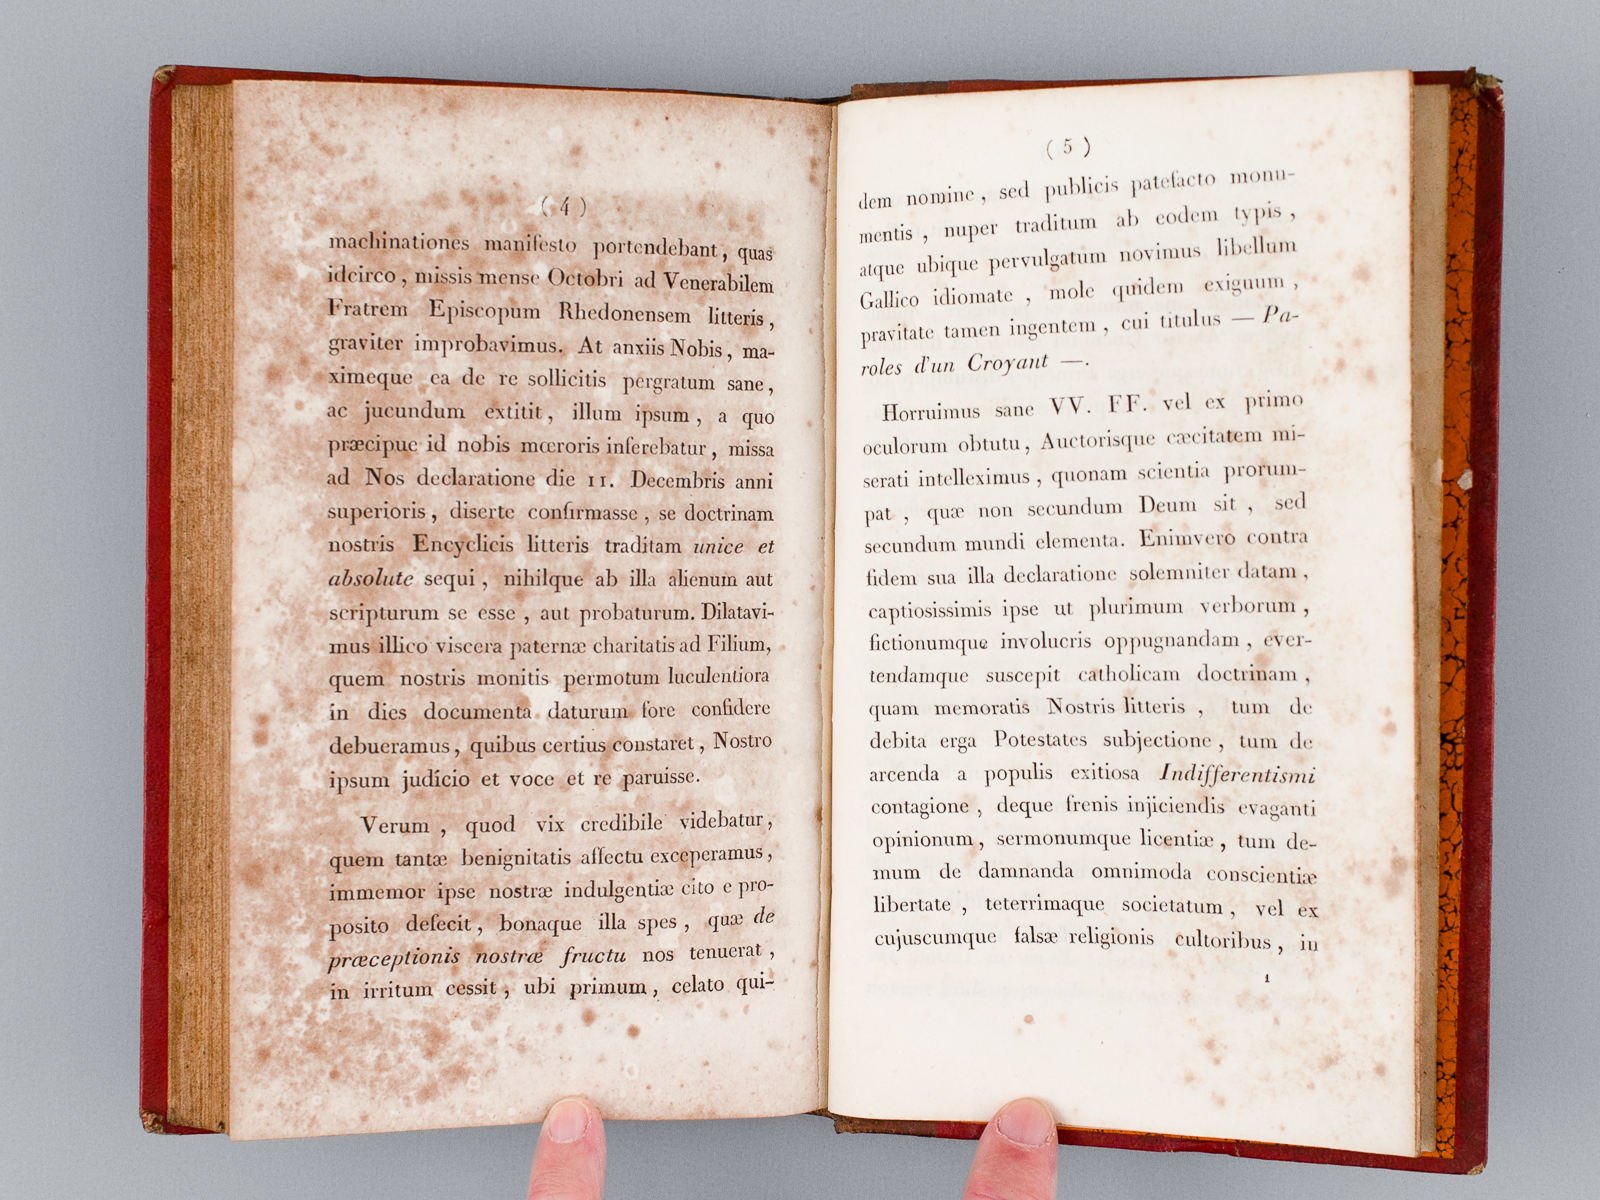 ( 4 )
machinationes manifesto portendebant, quas
idcirco, missis mense Octobri ad Venerabilem
Fratrem Episcopum Rhedonensem litteris,
graviter improbavimus. At anxiis Nobis, ma-
ximeque ea de re sollicitis pergratum sane,
ac jucundum extitit, illum ipsum, a quo
præcipue id nobis mœroris inferebatur, missa
ad Nos declaratione die 11. Decembris anni
superioris, diserte confirmasse, se doctrinam
nostris Encyclicis litteris traditam unice et
absolute sequi, nihilque ab illa alienum aut
scripturum se esse, aut probaturum. Dilatavi-
mus illico viscera paternæ charitatis ad Filium,
quem nostris monitis permotum luculentiora
in dies documenta daturum fore confidere
debueramus, quibus certius constaret, Nostro
ipsum judicio et voce et re paruisse.
Verum, quod vix credibile videbatur,
quem tantæ benignitatis affectu exceperamus,
immemor ipse nostræ indulgentiæ cito e pro-
posito defecit, bonaque illa spes, quæ de
præceptionis nostræ fructu nos tenuerat,
in irritum cessit, ubi primum, celato qui-
( 5 )
dem nomine, sed publicis patefacto monu-
mentis, nuper traditum ab eodem typis,
atque ubique pervulgatum novimus libellum
Gallico idiomate, mole quidem exiguum,
pravitate tamen ingentem, cui titulus — Pa-
roles d'un Croyant —.
Horruimus sane VV. FF. vel ex primo
oculorum obtutu, Auctorisque cæcitatem mi-
serati intelleximus, quonam scientia prorum-
pat, quæ non secundum Deum sit, sed
secundum mundi elementa. Enimvero contra
fidem sua illa declaratione solemniter datam,
captiosissimis ipse ut plurimum verborum,
fictionumque involucris oppugnandam, ever-
tendamque suscepit catholicam doctrinam,
quam memoratis Nostris litteris, tum de
debita erga Potestates subjectione, tum de
arcenda a populis exitiosa Indifferentismi
contagione, deque frenis injiciendis evaganti
opinionum, sermonumque licentiæ, tum de-
mum de damnanda omnimoda conscientiæ
libertate, teterrimaque societatum, vel ex
cujuscumque falsæ religionis cultoribus, in
1